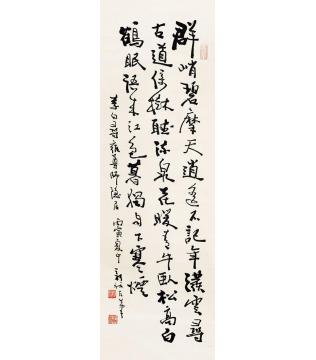 群峭碧摩天逍遙不記年撥雲尋
古道倚樹聽流泉花暖青牛臥松高白
鶴眠語來江色暮獨自下寒煙
李白尋雍尊師隱居 丙寅夏中